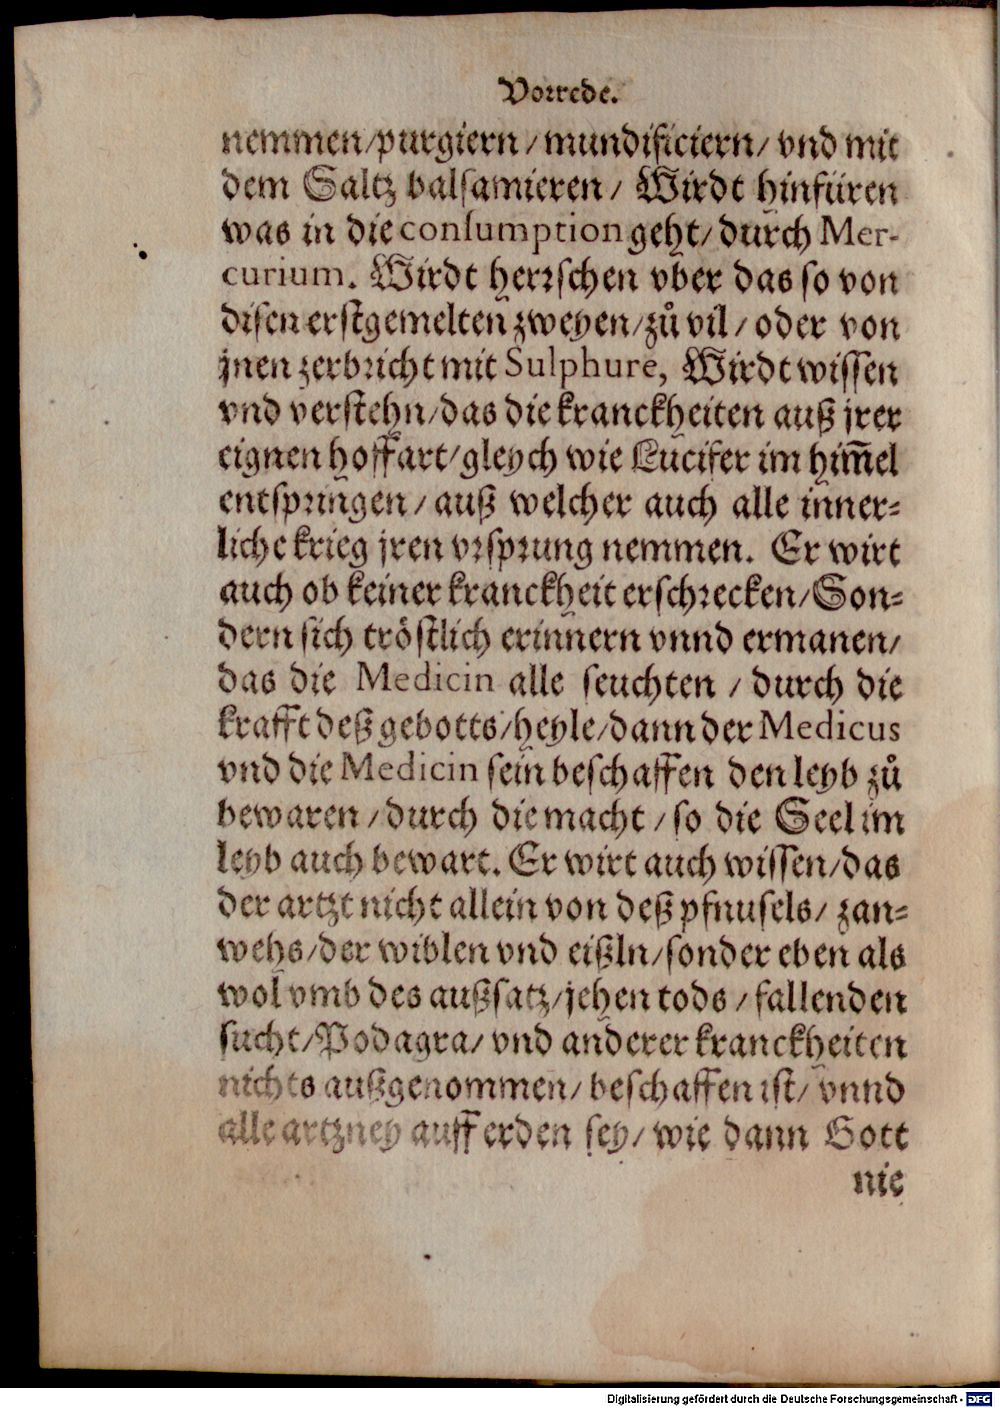 Vorrede.
nemmen/purgiern/mundificiern/vnd mit
dem Saltz balsamieren/ Wirdt hinfüren
was in die consumption geht/durch Mer-
curium. Wirdt herrschen vber das so von
disen erstgemelten zweyen/zů vil/oder von
jnen zerbricht mit Sulphure, Wirdt wissen
vnd verstehn/das die kranckheiten auß jrer
eignen hoffart/gleych wie Lucifer im him̄el
entspringen/auß welcher auch alle inner-
liche krieg jren vrsprung nemmen. Er wirt
auch ob keiner kranckheit erschrecken/Son-
dern sich tröstlich erinnern vnnd ermanen/
das die Medicin alle seuchten/durch die
krafft deß gebotts/heyle/dann der Medicus
vnd die Medicin sein beschaffen den leyb zů
bewaren/durch die macht/so die Seel im
leyb auch bewart. Er wirt auch wissen/das
der artzt nicht allein von deß pfnusels/ zan-
wehs/der wiblen vnd eißln/sonder eben als
wol vmb des außsatz/jehen tods/fallenden
sucht/Podagra/ vnd anderer kranckheiten
nichts außgenommen/ beschaffen ist/ vnnd
alle artzney auff erden sey/ wie dann Gott
nie
Digitalisierung gefördert durch die Deutsche Forschungsgemeinschaft - DFG